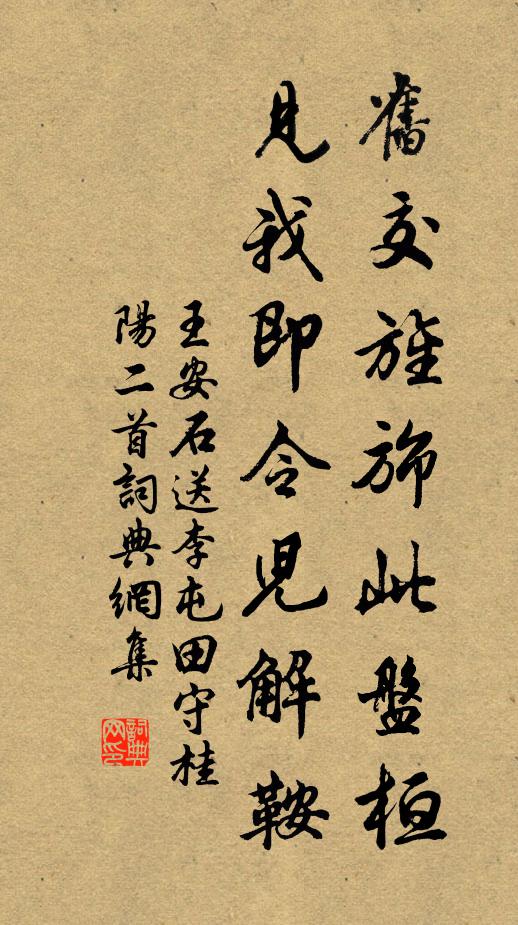 舊交旌旆此盤桓
見我即令兒解鞍
王安石送李屯田守桂
陽二首詞典網集
詞典
網印